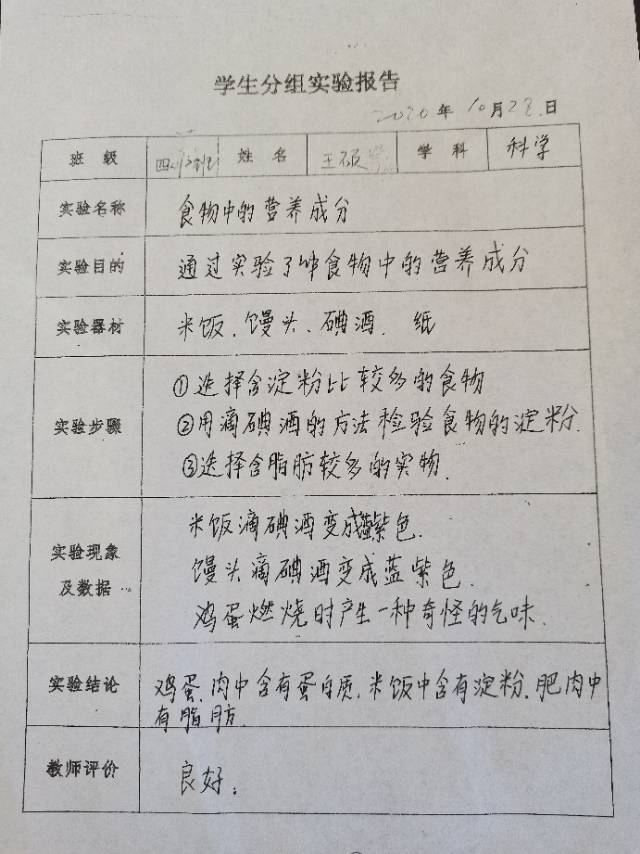 学生分组实验报告
2020年10月22日
班 级 姓 名 王硕 学 科 科学
实验名称 食物中的营养成分
实验目的 通过实验了解食物中的营养成分
实验器材 米饭、馒头、碘酒、纸
实验步骤
①选择含淀粉比较多的食物
②用滴碘酒的方法检验食物的淀粉.
③选择含脂肪较多的实物.
实验现象
及数据
米饭滴碘酒变成蓝紫色.
馒头滴碘酒变成蓝紫色.
鸡蛋燃烧时产生一种奇怪的气味.
实验结论 鸡蛋、肉中含有蛋白质.米饭中含有淀粉.肥肉中
有脂肪.
教师评价 良好;